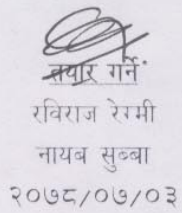 तयार गर्ने
रविराज रेग्मी
नायब सुब्बा
२०७८/०७/०३